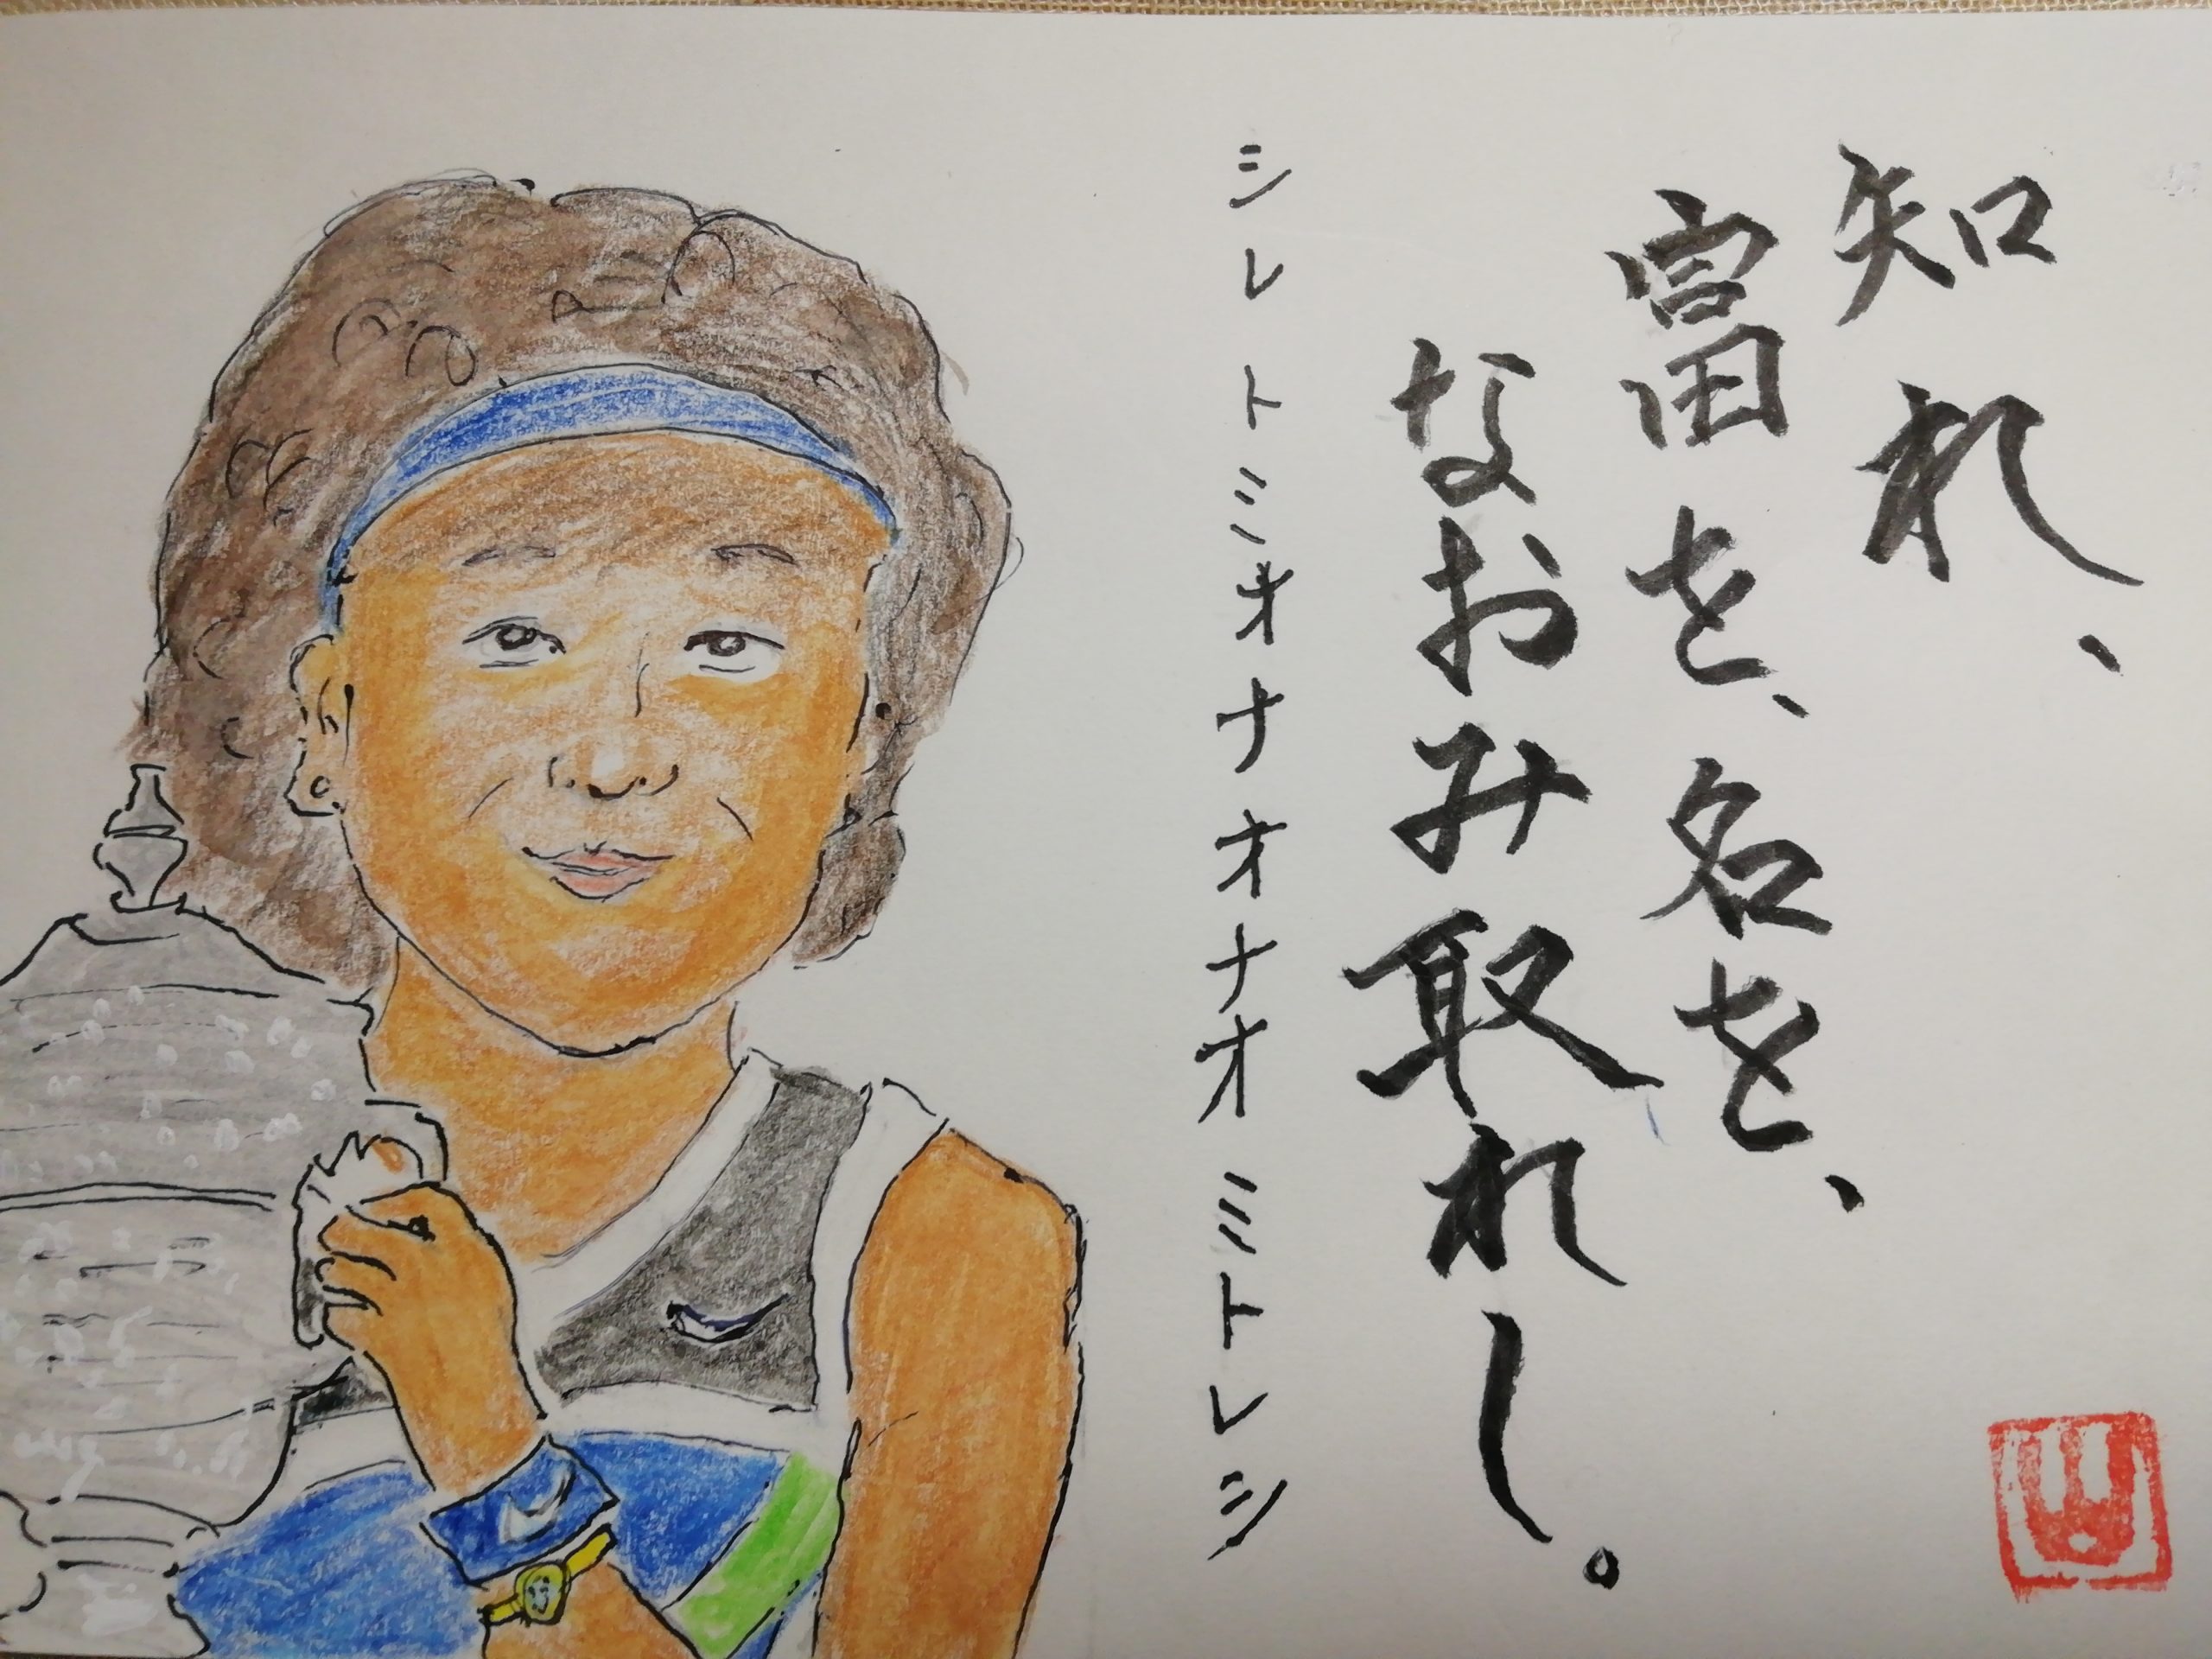 知れ、
富を、名を、
なおみ取れし。
シレトミオナオナオミトレシ